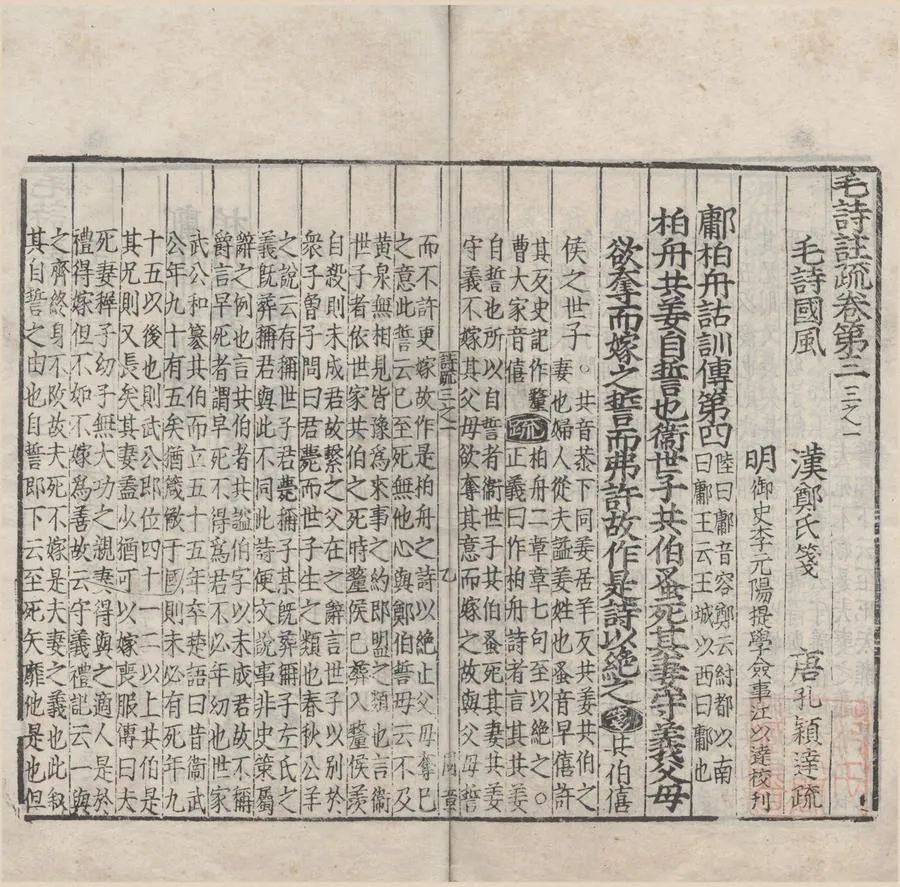 毛詩註疏卷第三 三之一
毛詩國風 漢鄭氏箋 唐孔穎達疏
明御史李元陽提學僉事江以達校刊
鄘柏舟詁訓傳第四 陸曰鄘音容鄭云紂都以南
曰鄘王云王城以西曰鄘也
柏舟共姜自誓也衞世子共伯蚤死其妻守義父母
欲奪而嫁之誓而弗許故作是詩以絶之 箋 共伯僖
侯之世子 ○共音恭下同姜居羊反共姜共伯之
妻也婦人從夫謚姜姓也蚤音早僖許
其反史記作釐
曹大家音僖 疏 柏舟二章章七句至以絶之○
正義曰作柏舟詩者言其共姜
自誓也所以自誓者衞世子共伯蚤死其妻共姜
守義不嫁其父母欲奪其意而嫁之故與父母誓
詩疏三之一
而不許更嫁故作是柏舟之詩以絶止父母奪已
之意此誓云已至死無他心與鄭伯誓母云不及
黃泉無相見皆豫爲來事之約即盟之類也言衞
世子者依世家共伯之死時釐侯已葬入釐侯羨
自殺則未成君故繫之父在之辭言世子以別於
衆子曾子問曰君薨而世子生之類也春秋公羊
之說云存稱世子君薨稱子某旣葬稱子左氏之
義旣葬稱君與此不同此詩便文說事非史策屬
辭之例也言共伯者共謚伯字以未成君故不稱
爵言早死者謂早死不得爲君不必年幼也世家
武公和簒共伯而立五十五年卒楚語曰昔衞武
公年九十有五矣猶箴儆于國則未必有死年九
十五以後也則武公即位四十一二以上共伯是
其兄則又長矣其妻蓋少猶可以嫁喪服傳曰夫
死妻稺子幼子無大功之親妻得與之適人是於
禮得嫁但不如不嫁爲善故云守義禮記云一與
之齊終身不改故夫死不嫁是夫妻之義也此叙
其自誓之由也自誓即下云至死矢靡他是也但